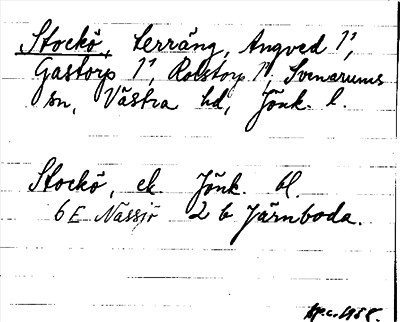 Stockö, terräng, Angved 1¹,
Gastorp 1¹, Rolstorp 1¹, Svenarums
sn, Västra hd, Jönk. l.
Stockö, ek. Jönk. bl.
6 E Nässjö 2 b Järnboda.
1958.